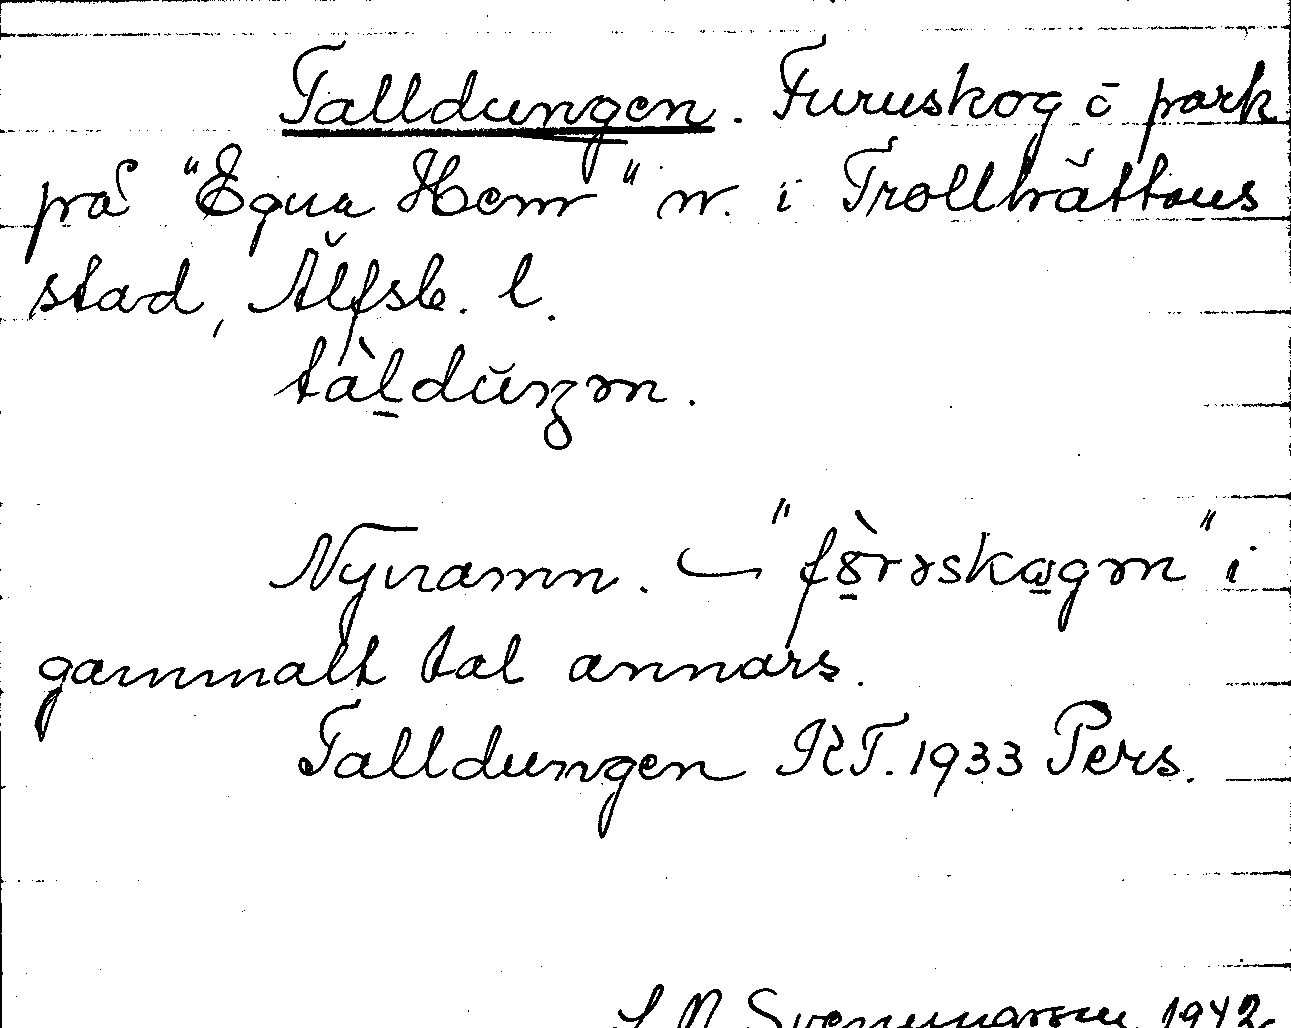 Talldungen. Furuskog o park
på "Egna Hem" n. i Trollhättans
stad, Älfsb. l.
tàl̠dŭŋən.
Nynamn. "fö̀rəskogən" i
gammalt tal annars.
Talldungen RT. 1933 Pers.
1942.